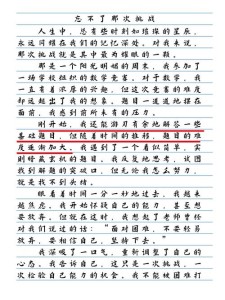 忘不了那次挑战
人生中，总有些时刻如璀璨的星辰，
永远闪耀在我们的记忆深处。对我来说，
那次挑战就是其中之一。
那是一个阳光明媚的周末，我参加了
一场学校组织的数学竞赛。对于数学，我
一直有着浓厚的兴趣，但这次竞赛的难度
却超出了我的想象。题目一道道地摆在
面前，我感到前所未有的压力。
刚开始，我还能游刃有余地解答一些
基础题目，但随着时间的推移，题目的难
度逐渐加大。我遇到了一个看似简单，实
则暗藏玄机的题目。我反复地思考，试图
找到解题的突破口，但无论我怎么努力，
就是找不到头绪。
眼看着时间一分一秒地过去，我越来
越焦急。我开始怀疑自己的能力，甚至想
要放弃。但在这时，我想起了老师曾经
对我们说过的话：“面对困难，不要轻易
放弃，要相信自己，坚持下去。”
我深吸了一口气，重新调整了自己的
心态。我告诉自己，这只是一次挑战，一
次检验自己能力的机会，我不能被困难打